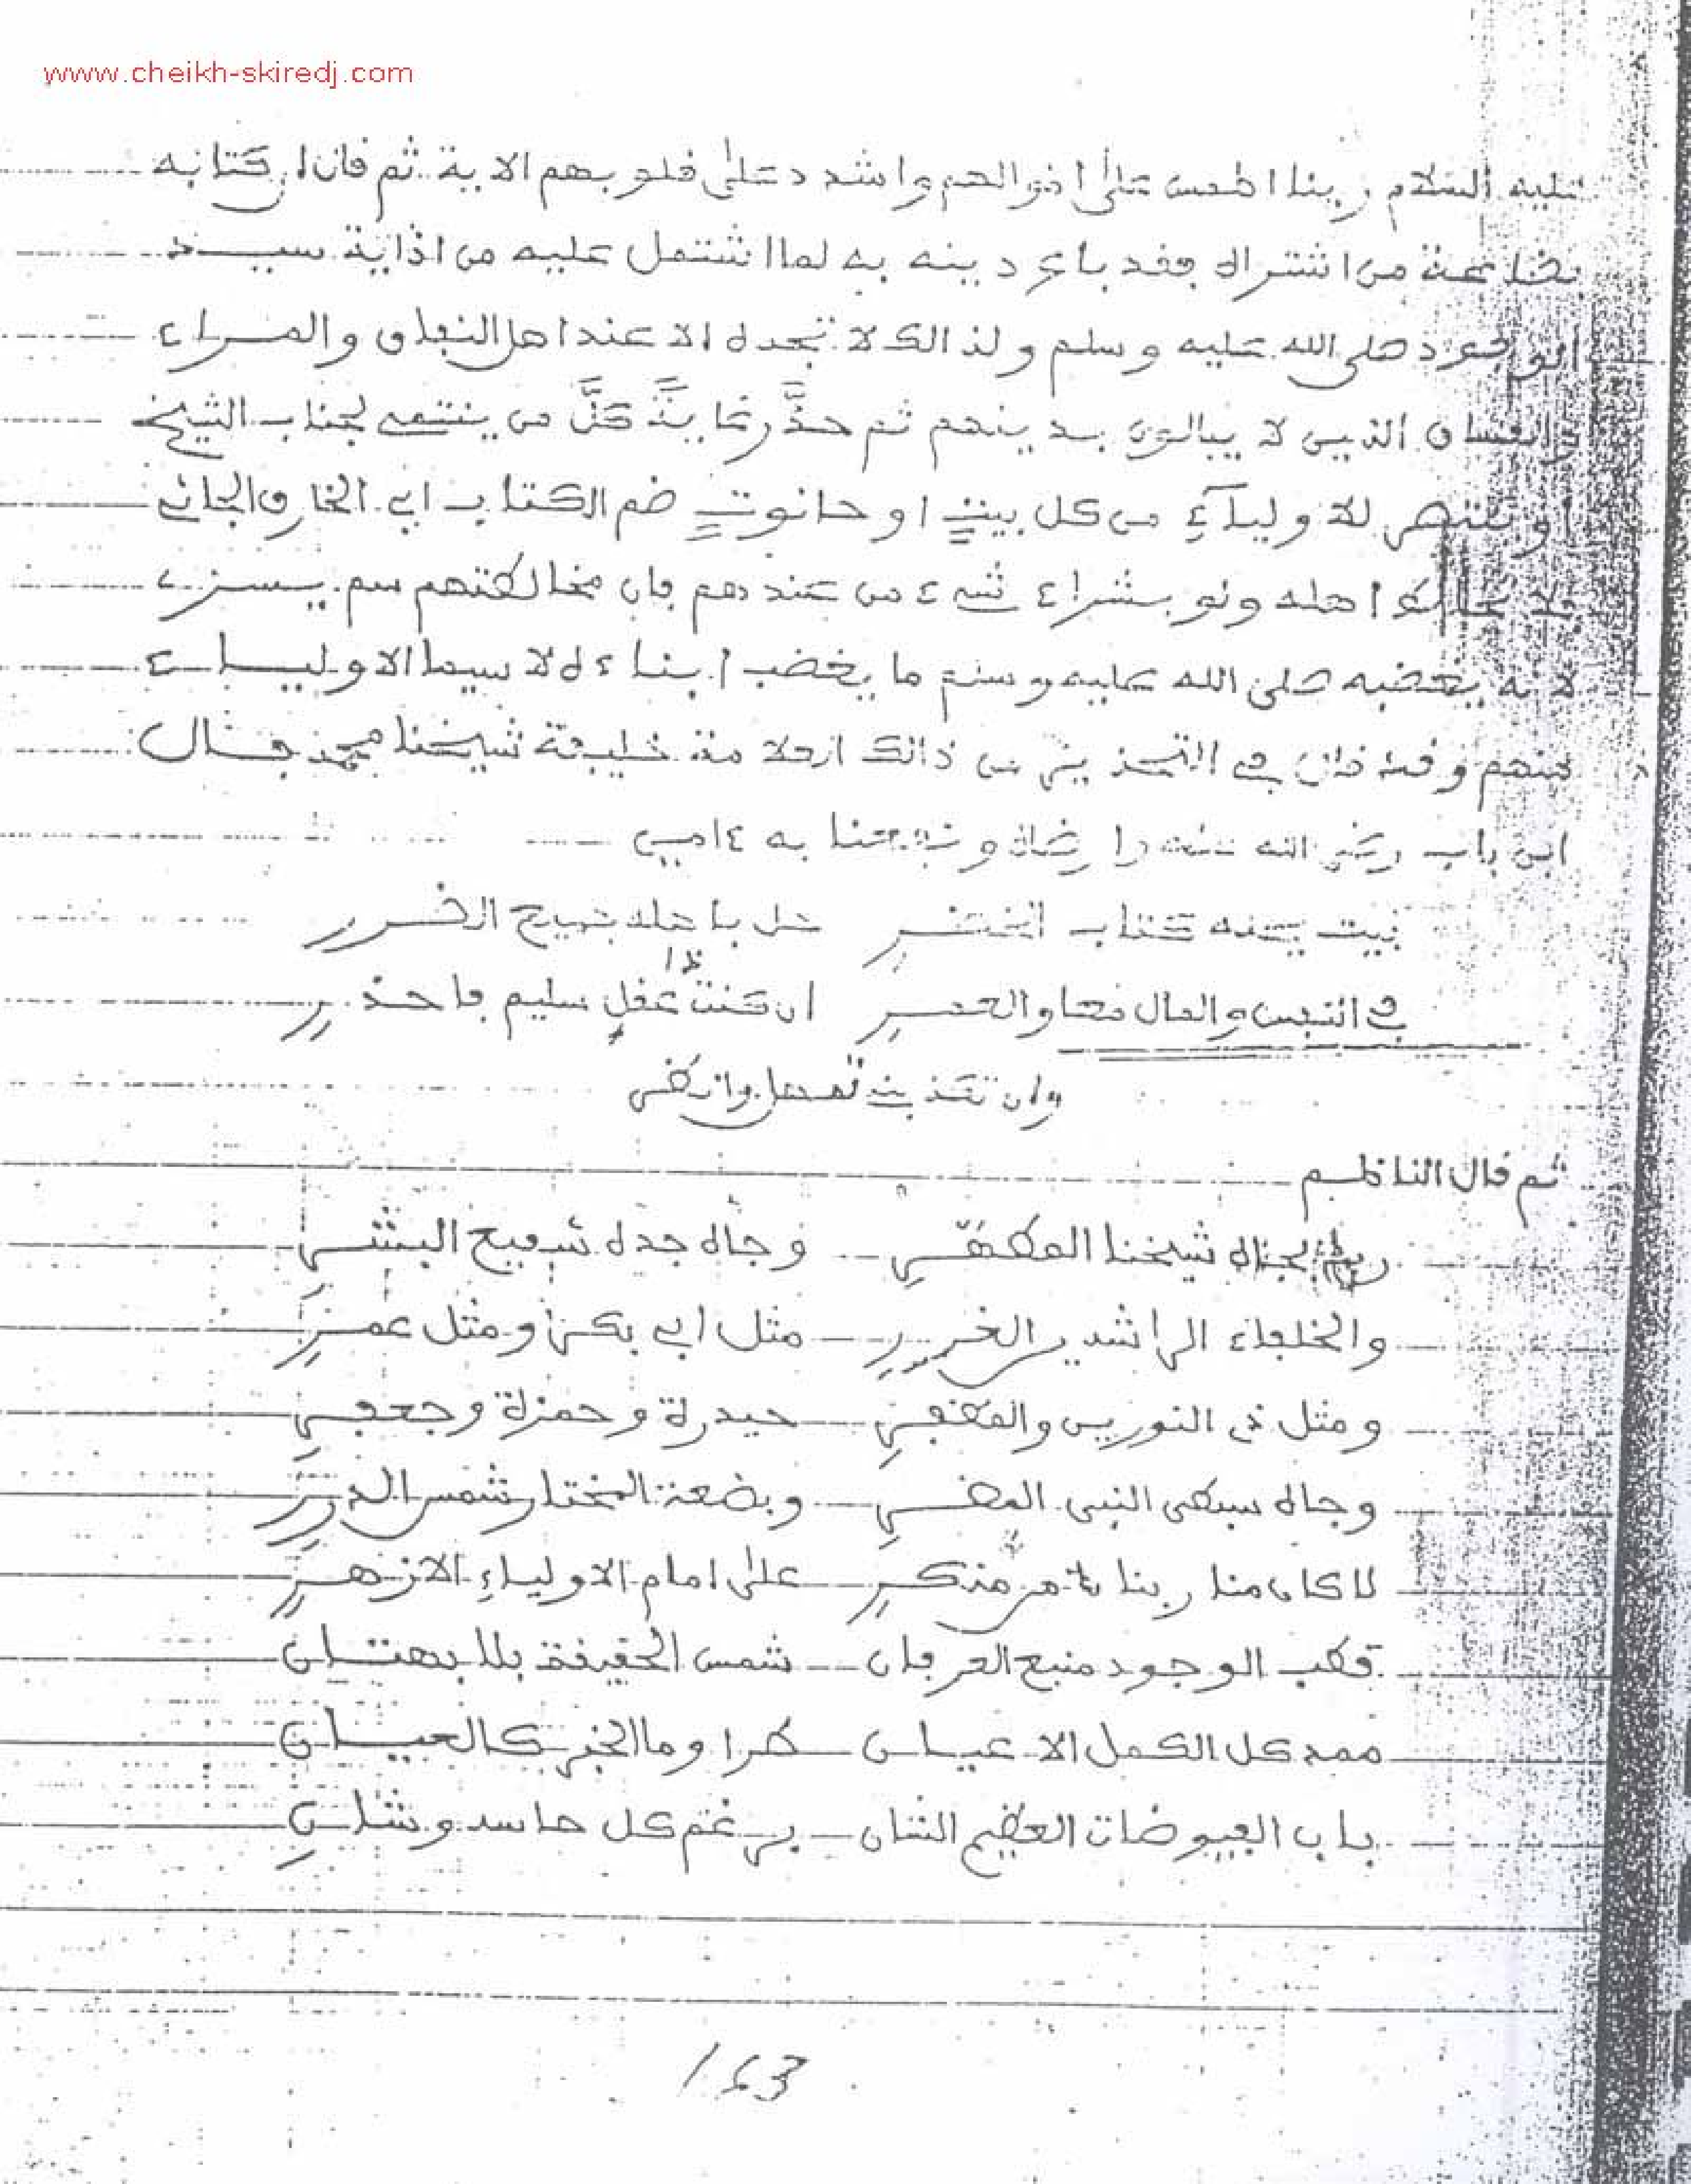 www.cheikh-skiredj.com
عليه السلام ربنا اطمس على اموالهم واشدد على قلوبهم الاية ثم قال ان كتابه
بضاعة من اشتراه فقد باع دينه به لما اشتمل عليه من اذاية سيد
الوجود صلى الله عليه وسلم ولذالك لا تجده الا عند اهل النفاق والمراء
والفساق الذين لا يبالون بدينهم ثم حذَّر كل من ينتمى لجناب الشيخ
او ينتصر للاولياءِ من كل بيتٍ او حانوتٍ ضم الكتاب ابي الخارق الجانى
اهله ولو بشراء شيء من عندهم فان مخالطتهم سم يسرى
لانه يغضبه صلى الله عليه وسلم ما يغضب ابناءه لا سيما الاولياء
منهم وقد قال في التحذير من ذالك خليفة شيخنا محمد فال
ابن باب رضي الله عنه وارضاه ونفعنا به ءامين
بيت به كتاب الخضر حل باهله جميع الضرر
في النفس والمال معا والعمر ان كنت ذا عقل سليم فاحذر
ثم قال الناظم
شيخنا المطهر وجاه جده شفيع البشر
والخلفاء الراشدين الغرر مثل ابي بكر ومثل عمرِ
ومثل ذى النورين والغضنفر حيدرة وحمزة وجعفرِ
وجاه سبطى النبى المضرِ وبضعة المختار شمس الدررِ
لا كان منا ربنا من منكرِ على امام الاولياءِ الازهرِ
قطب الوجود منبع العرفان شمس الحقيقة بلا بهتان
ممد كل الكمل الاعيان طرا وما الخبر كالعيان
باب الفيوضات العظيم الشان برغم كل حاسد وشانِ
163